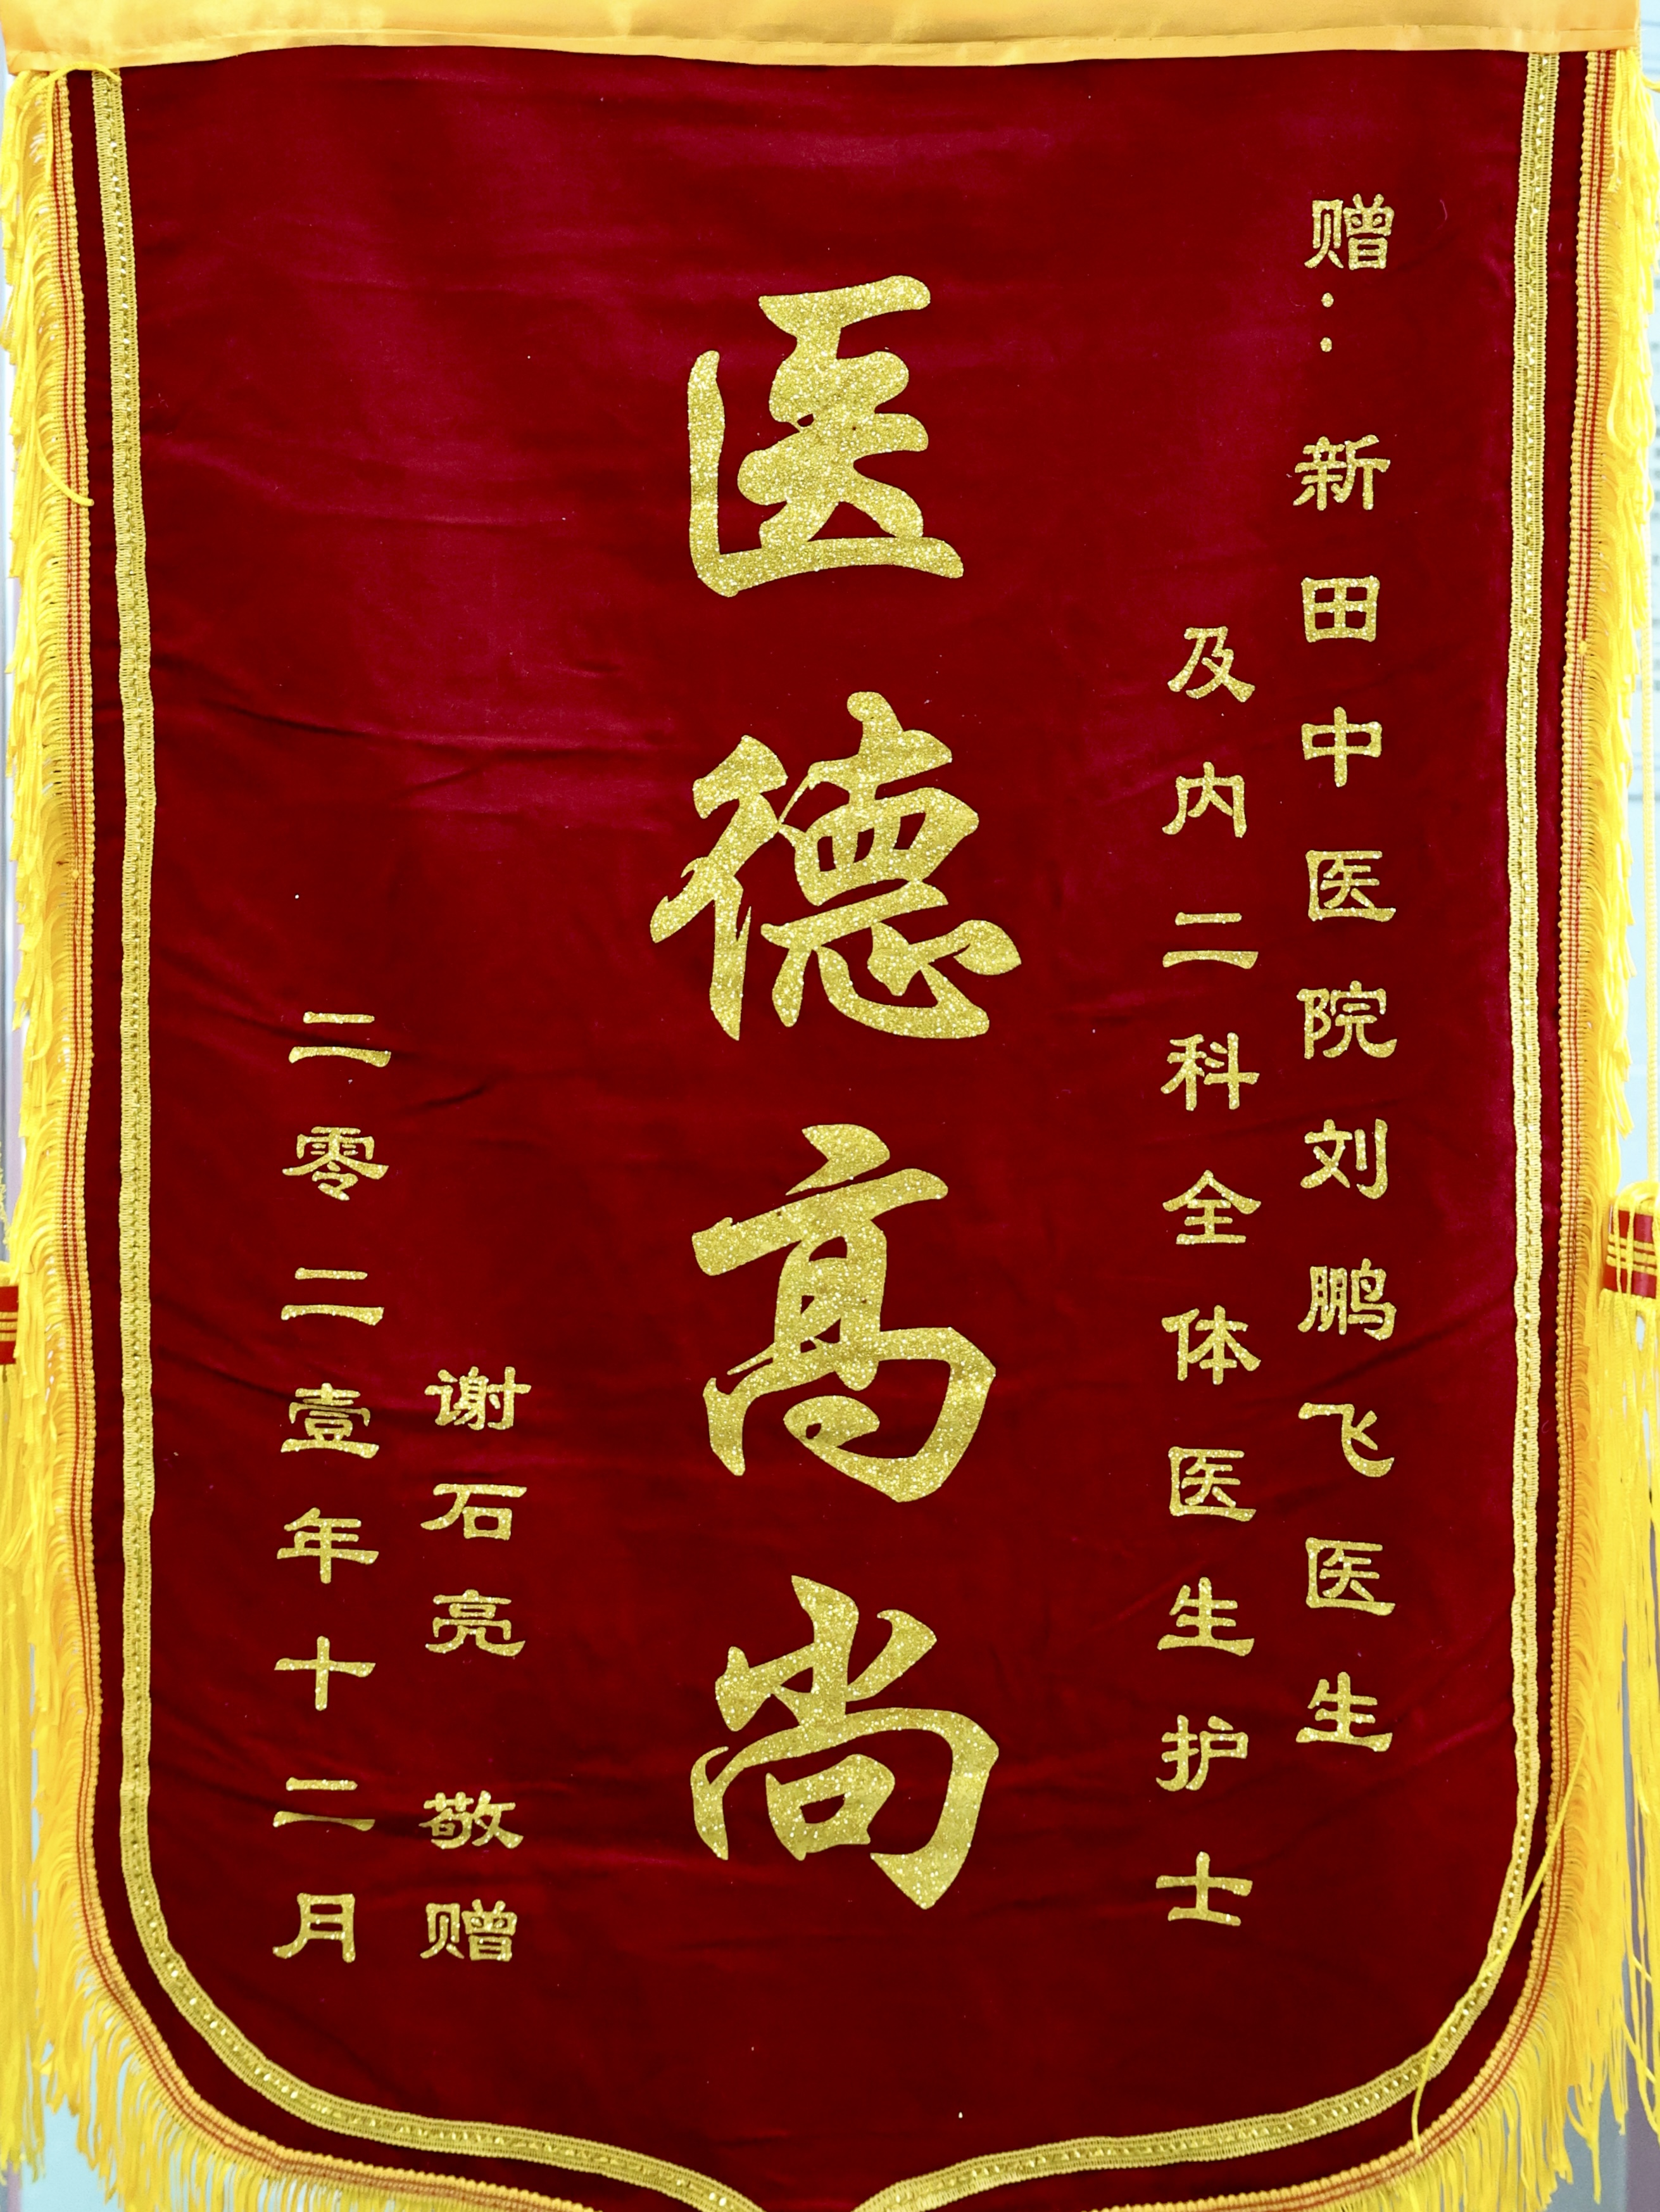 赠：新田中医院刘鹏飞医生
及内二科全体医生护士
医德高尚
谢石亮 敬赠
二零二壹年十二月